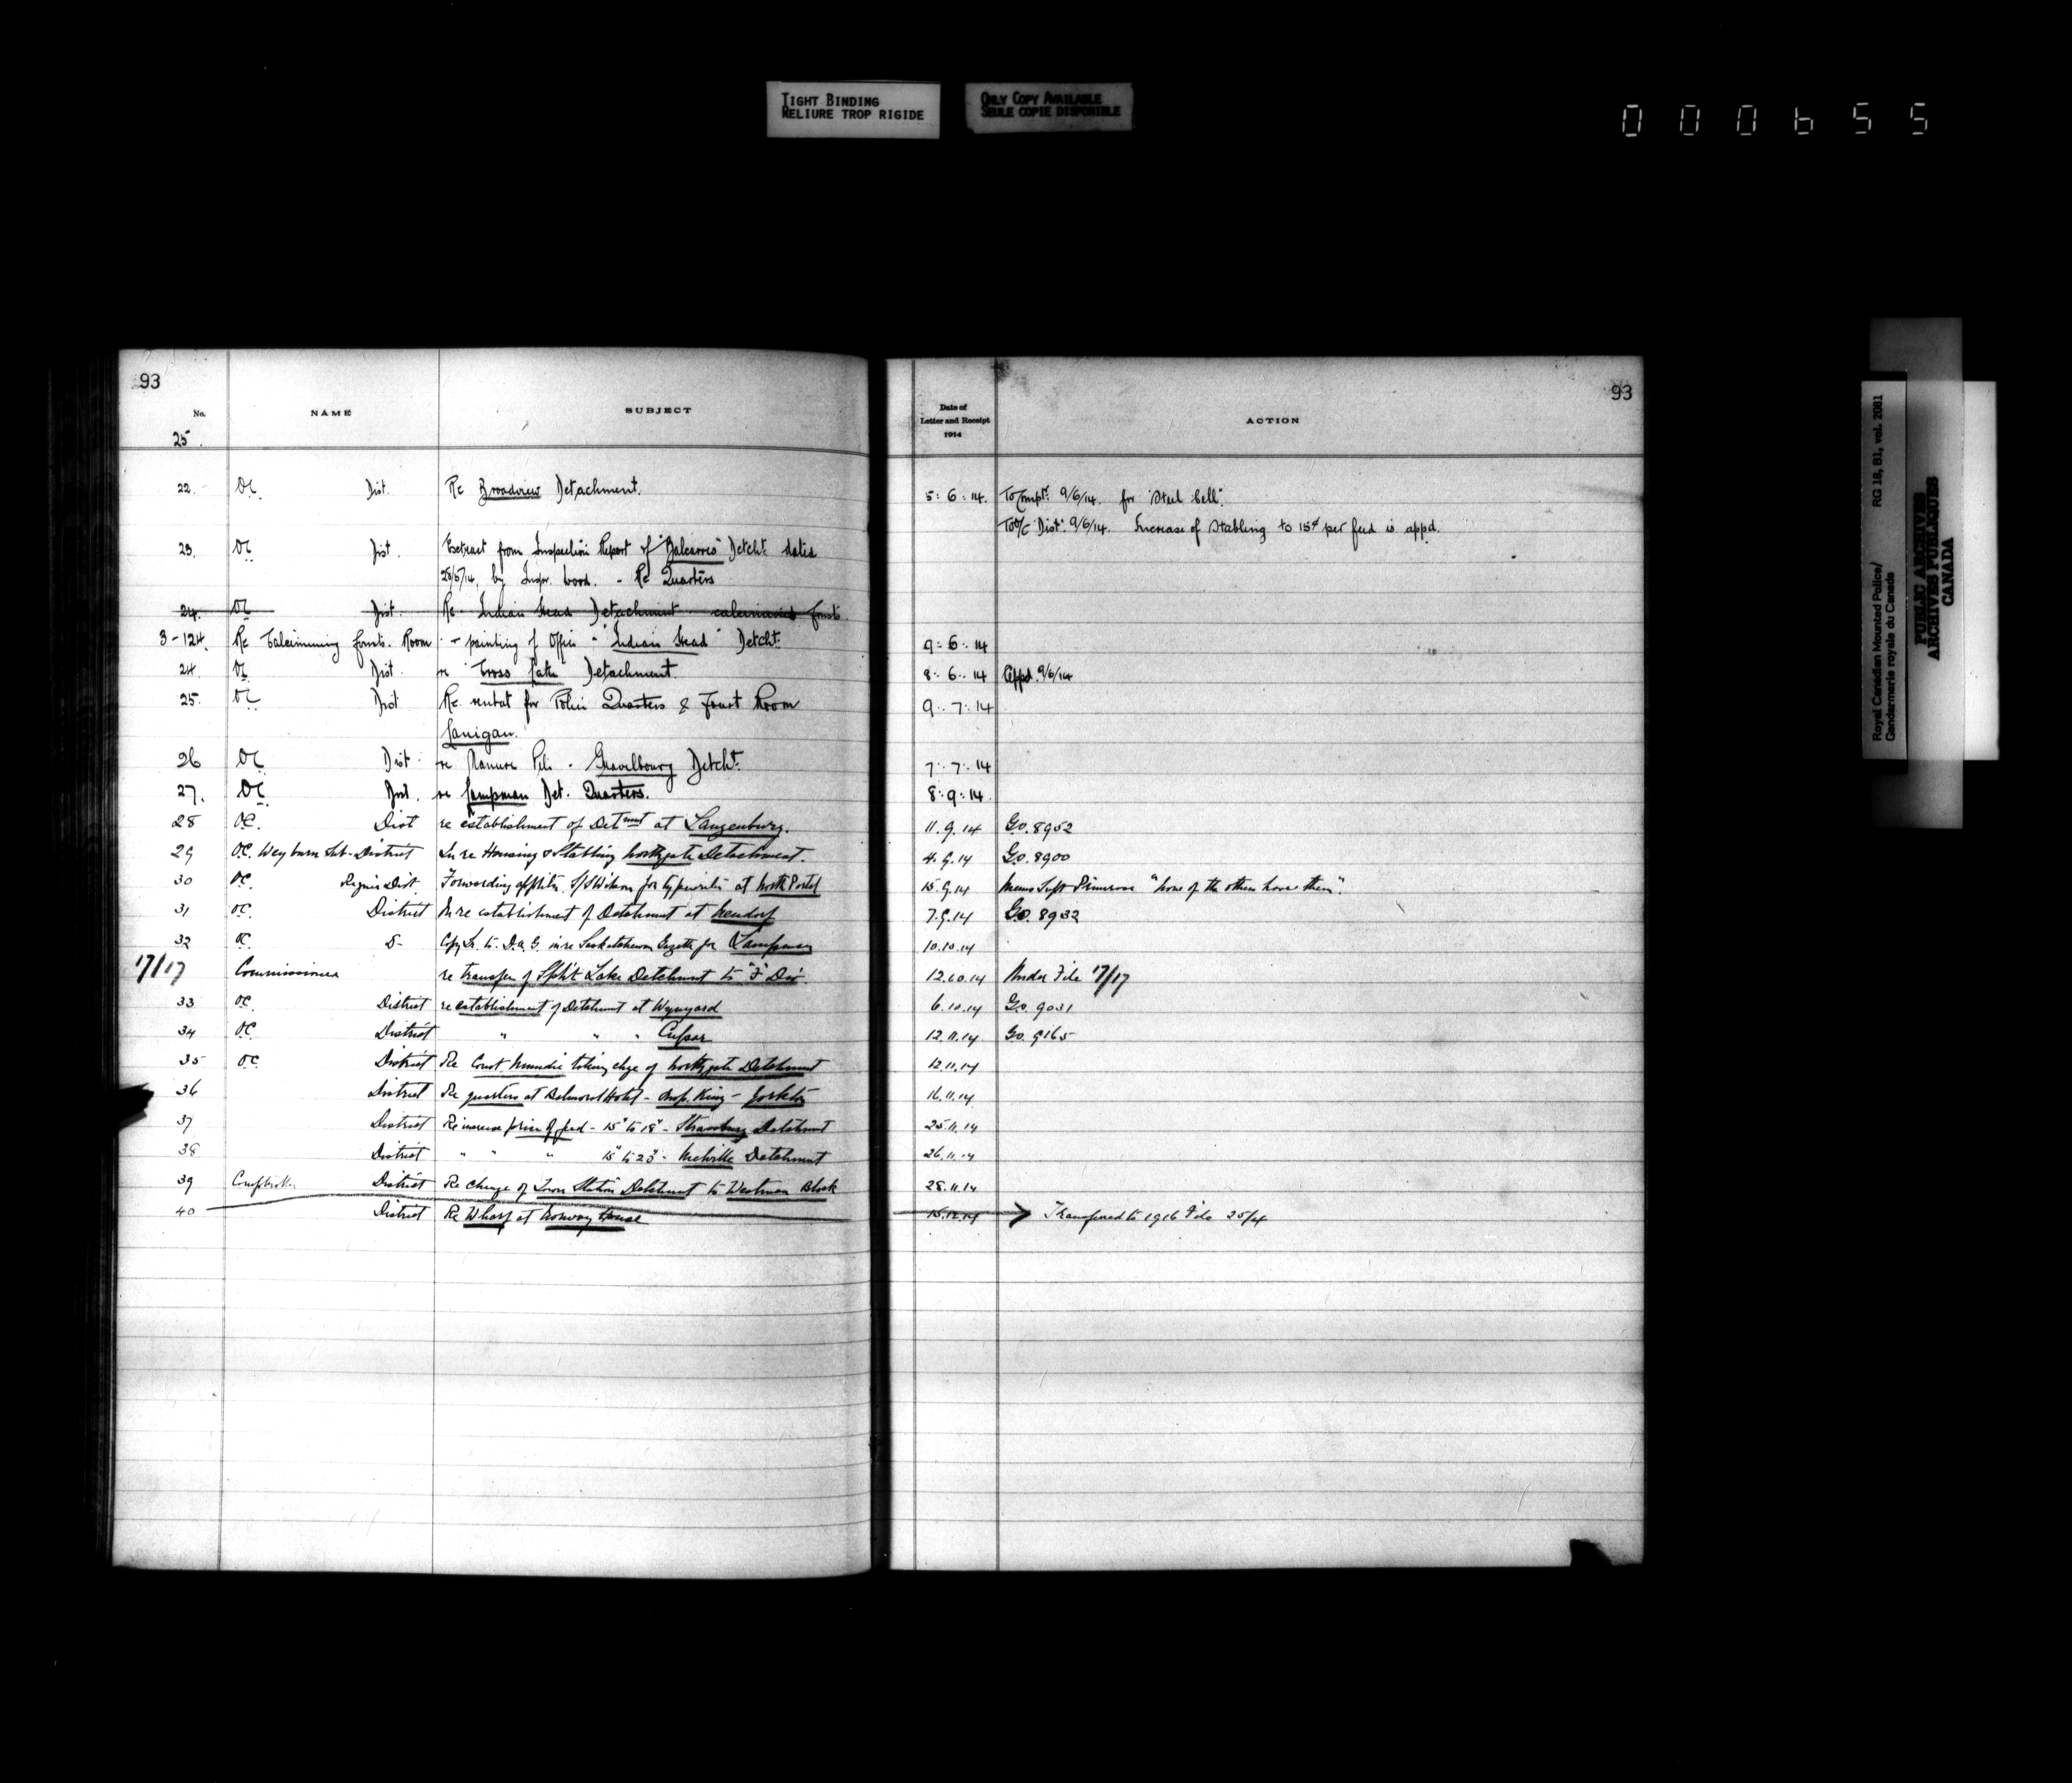 TIGHT BINDING
RELIURE TROP RIGIDE
ONLY COPY AVAILABLE
SEULE COPIE DISPONIBLE
000655
93
No. NAME SUBJECT
25.
22. OC. Dist. Re Broadview Detachment.
23. OC Dist. Extract from Inspection Report of "Balcarres" Detcht. dated
25/5/14, by Inspr. Wood. - Re Quarters
24. OC Dist. Re. Indian Head Detachment
3-124. Re Calcimining Const. Room - painting of Office - "Indian Head" Detcht.
24. OC Dist. re Cross Lake Detachment.
25. OC Dist Re. rental for Police Quarters & Court Room
Lanigan.
26 OC Dist re Manure Pile - Gravelbourg Detcht.
27. OC Dist. re Lampman Det. Quarters.
28 OC. Dist re establishment of Detmnt at Langenburg.
29 OC. Weyburn Sub-District In re Housing & Stabling Northgate Detachment.
30 OC. Regina Dist. Forwarding S/S Wilson for typewriter at North Portal
31 OC. District In re establishment of Detachment at
32 OC. D- Copy Lr. to D.A.G. in re Saskatchewan Gazette for Lampman
17/17 Commissioner re transfer of Split Lake Detchment to "F" Div.
33 OC. District re establishment of Detchment at Wynyard
34 OC. District " " " Cupar
35 OC. District Re Const. Mundie taking chge of Northgate Detchment
36 District Re quarters at Balmoral Hotel - Insp. King - Yorkton
37 District Re increase price of feed - 15" to 18" - Strassburg Detchment
38 District " " " 15" to 25" - Melville Detchment
39 District Re change of Town Station Detchment to Westman Block
40 District Re Wharf at Norway House
93
Date of
Letter and Receipt
1914
ACTION
5:6:14. To Compt. 9/6/14. for "Steel Cell".
To O/C "Dist". 9/6/14. Increase of Stabling to 15¢ per feed is appd.
9:6:14
8:6:14 Appd. 9/6/14
9:7:14
7:7:14
8:9:14.
11.9.14 G.O. 8952
4.9.14 G.O. 8900
15.9.14 Memo Supt Primrose "none of the others have them".
7.9.14 G.O. 8932
10.10.14
12.10.14 Under File 17/17
6.10.14 G.O. 9031
12.11.14 G.O. 9165
12.11.14
16.11.14
25.11.14
26.11.14
28.11.14
15.12.14 Transferred to 1916 File 25/4
Royal Canadian Mounted Police/
Gendarmerie royale du Canada
RG 18, B1, vol. 2081
PUBLIC ARCHIVES
ARCHIVES PUBLIQUES
CANADA